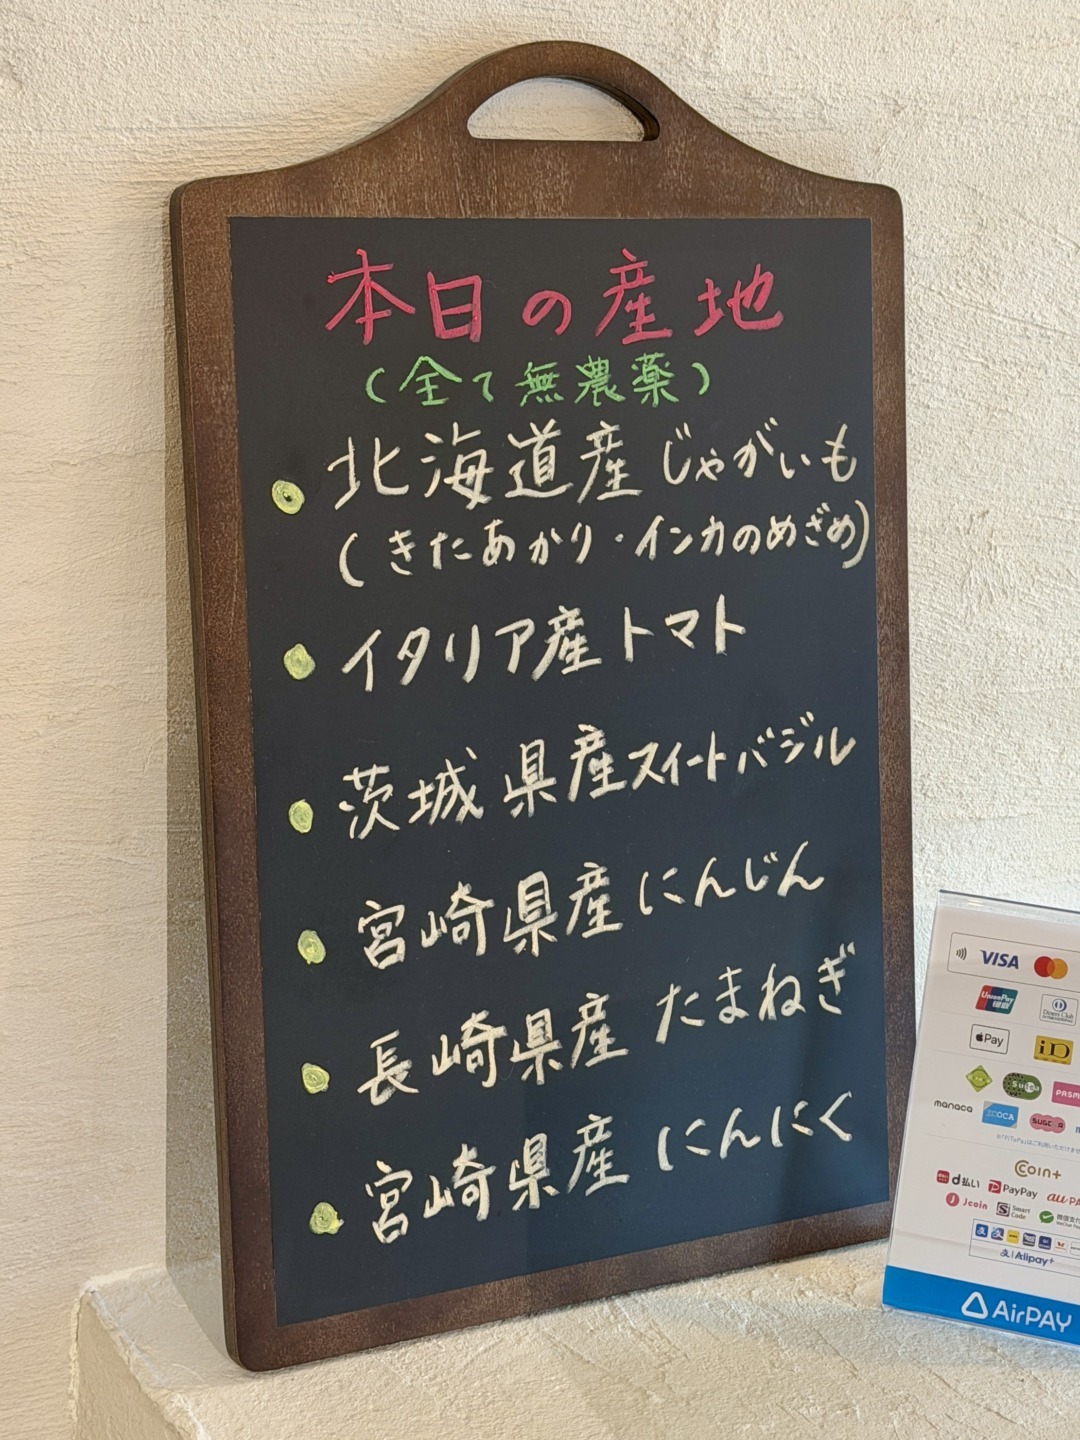 本日の産地
(全て無農薬)
北海道産 じゃがいも
(きたあかり・インカのめざめ)
イタリア産トマト
茨城県産スイートバジル
宮崎県産にんじん
長崎県産 たまねぎ
宮崎県産 にんにく
VISA
UnionPay
银联
Diners Club
Pay
iD
Suica
PASM
manaca
ICOCA
SUGOCA
COIN+
d払い
PayPay
au PA
Jcoin
Smart Code
微信支付
Alipay+
AirPAY